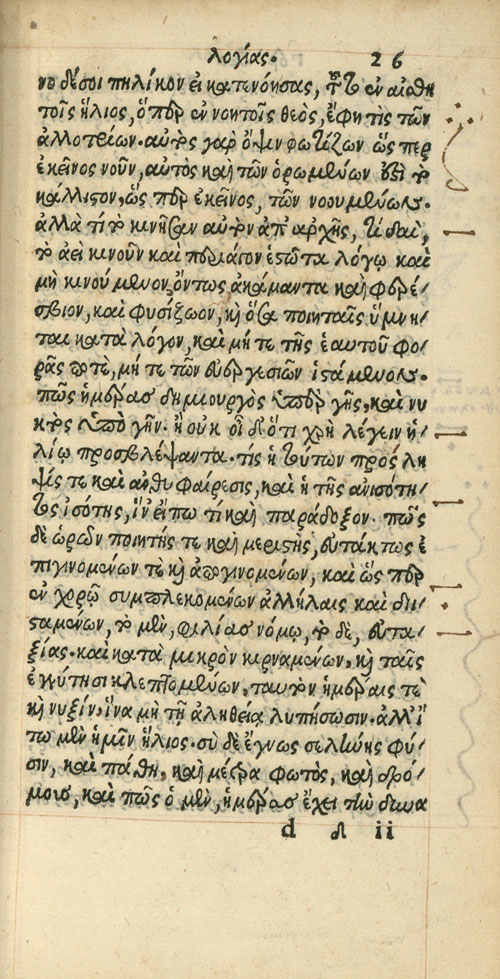 λογίας. 26
νο δέ σοι πηλίκον εἰ κατενόησας, ὅτι τοῦτο ἐν αἰσθη
τοῖς ἥλιος, ὅπερ ἐν νοητοῖς θεὸς, ἔφη τὶς τῶν
ἀλλοτρίων. αὐτὸς γὰρ ὄψιν φωτίζων ὥς περ
ἐκεῖνος νοῦν, αὐτὸς καὶ τῶν ὁρωμένων ἐστὶ τὸ
κάλλιστον, ὥς περ ἐκεῖνος, τῶν νοουμένων.
ἀλλὰ τί τὸ κινῆσαν αὐτὸν ἀπ' ἀρχῆς, τί δαὶ,
τὸ ἀεὶ κινοῦν καὶ περιάγον ἑστῶτα λόγῳ καὶ
μὴ κινούμενον, ὄντως ἀκάμαντα καὶ φερέ/
σβιον, καὶ φυσίζωον, καὶ ὅσα ποιηταῖς ὕμνη/
ται κατὰ λόγον, καὶ μή τε τῆς ἑαυτοῦ φο/
ρᾶς ποτὲ, μή τε τῶν εὐεργεσιῶν ἱστάμενον.
πῶς ἡμέρας δημιουργὸς ὑπὲρ γῆς, καὶ νυ
κτὸς ὑπὸ γῆν. ἢ οὐκ οἶδ' ὅτι χρὴ λέγειν ἡ/
λίῳ προσβλέψαντα. τίς ἡ τούτων πρόσλη
ψίς τε καὶ ἀνθυφαίρεσις, καὶ ἡ τῆς ἀνισότη/
τος ἰσότης, ἵν' εἴπω τὶ καὶ παράδοξον. πῶς
δὲ ὡρῶν ποιητής τε καὶ μεριστής, εὐτάκτως ἐ
πιγινομένων τὲ καὶ ἀπογινομένων, καὶ ὥς περ
ἐν χορῷ συμπλεκομένων ἀλλήλαις καὶ διι/
σταμένων, τὸ μὲν, φιλίας νόμῳ, τὸ δὲ, εὐτα/
ξίας. καὶ κατὰ μικρὸν κιρναμένων, καὶ ταῖς
ἐγγύτησι κλεπτομένων, ταυτὸν ἡμέραις τὲ
καὶ νυξίν, ἵνα μὴ τῇ ἀληθείᾳ λυπήσωσιν. ἀλλ' ἴ
τω μὲν ἡμῖν ἥλιος. σὺ δὲ ἔγνως σελήνης φύ/
σιν, καὶ πάθη, καὶ μέτρα φωτὸς, καὶ δρό/
μους, καὶ πῶς ὁ μὲν, ἡμέρας ἔχει τὴν δυνα
d δ ii